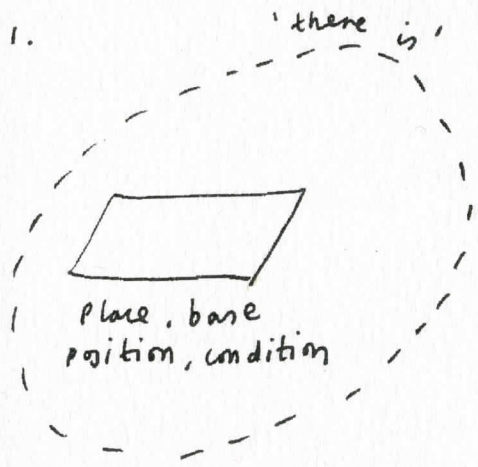 1.
'there is'
place, base
position, condition